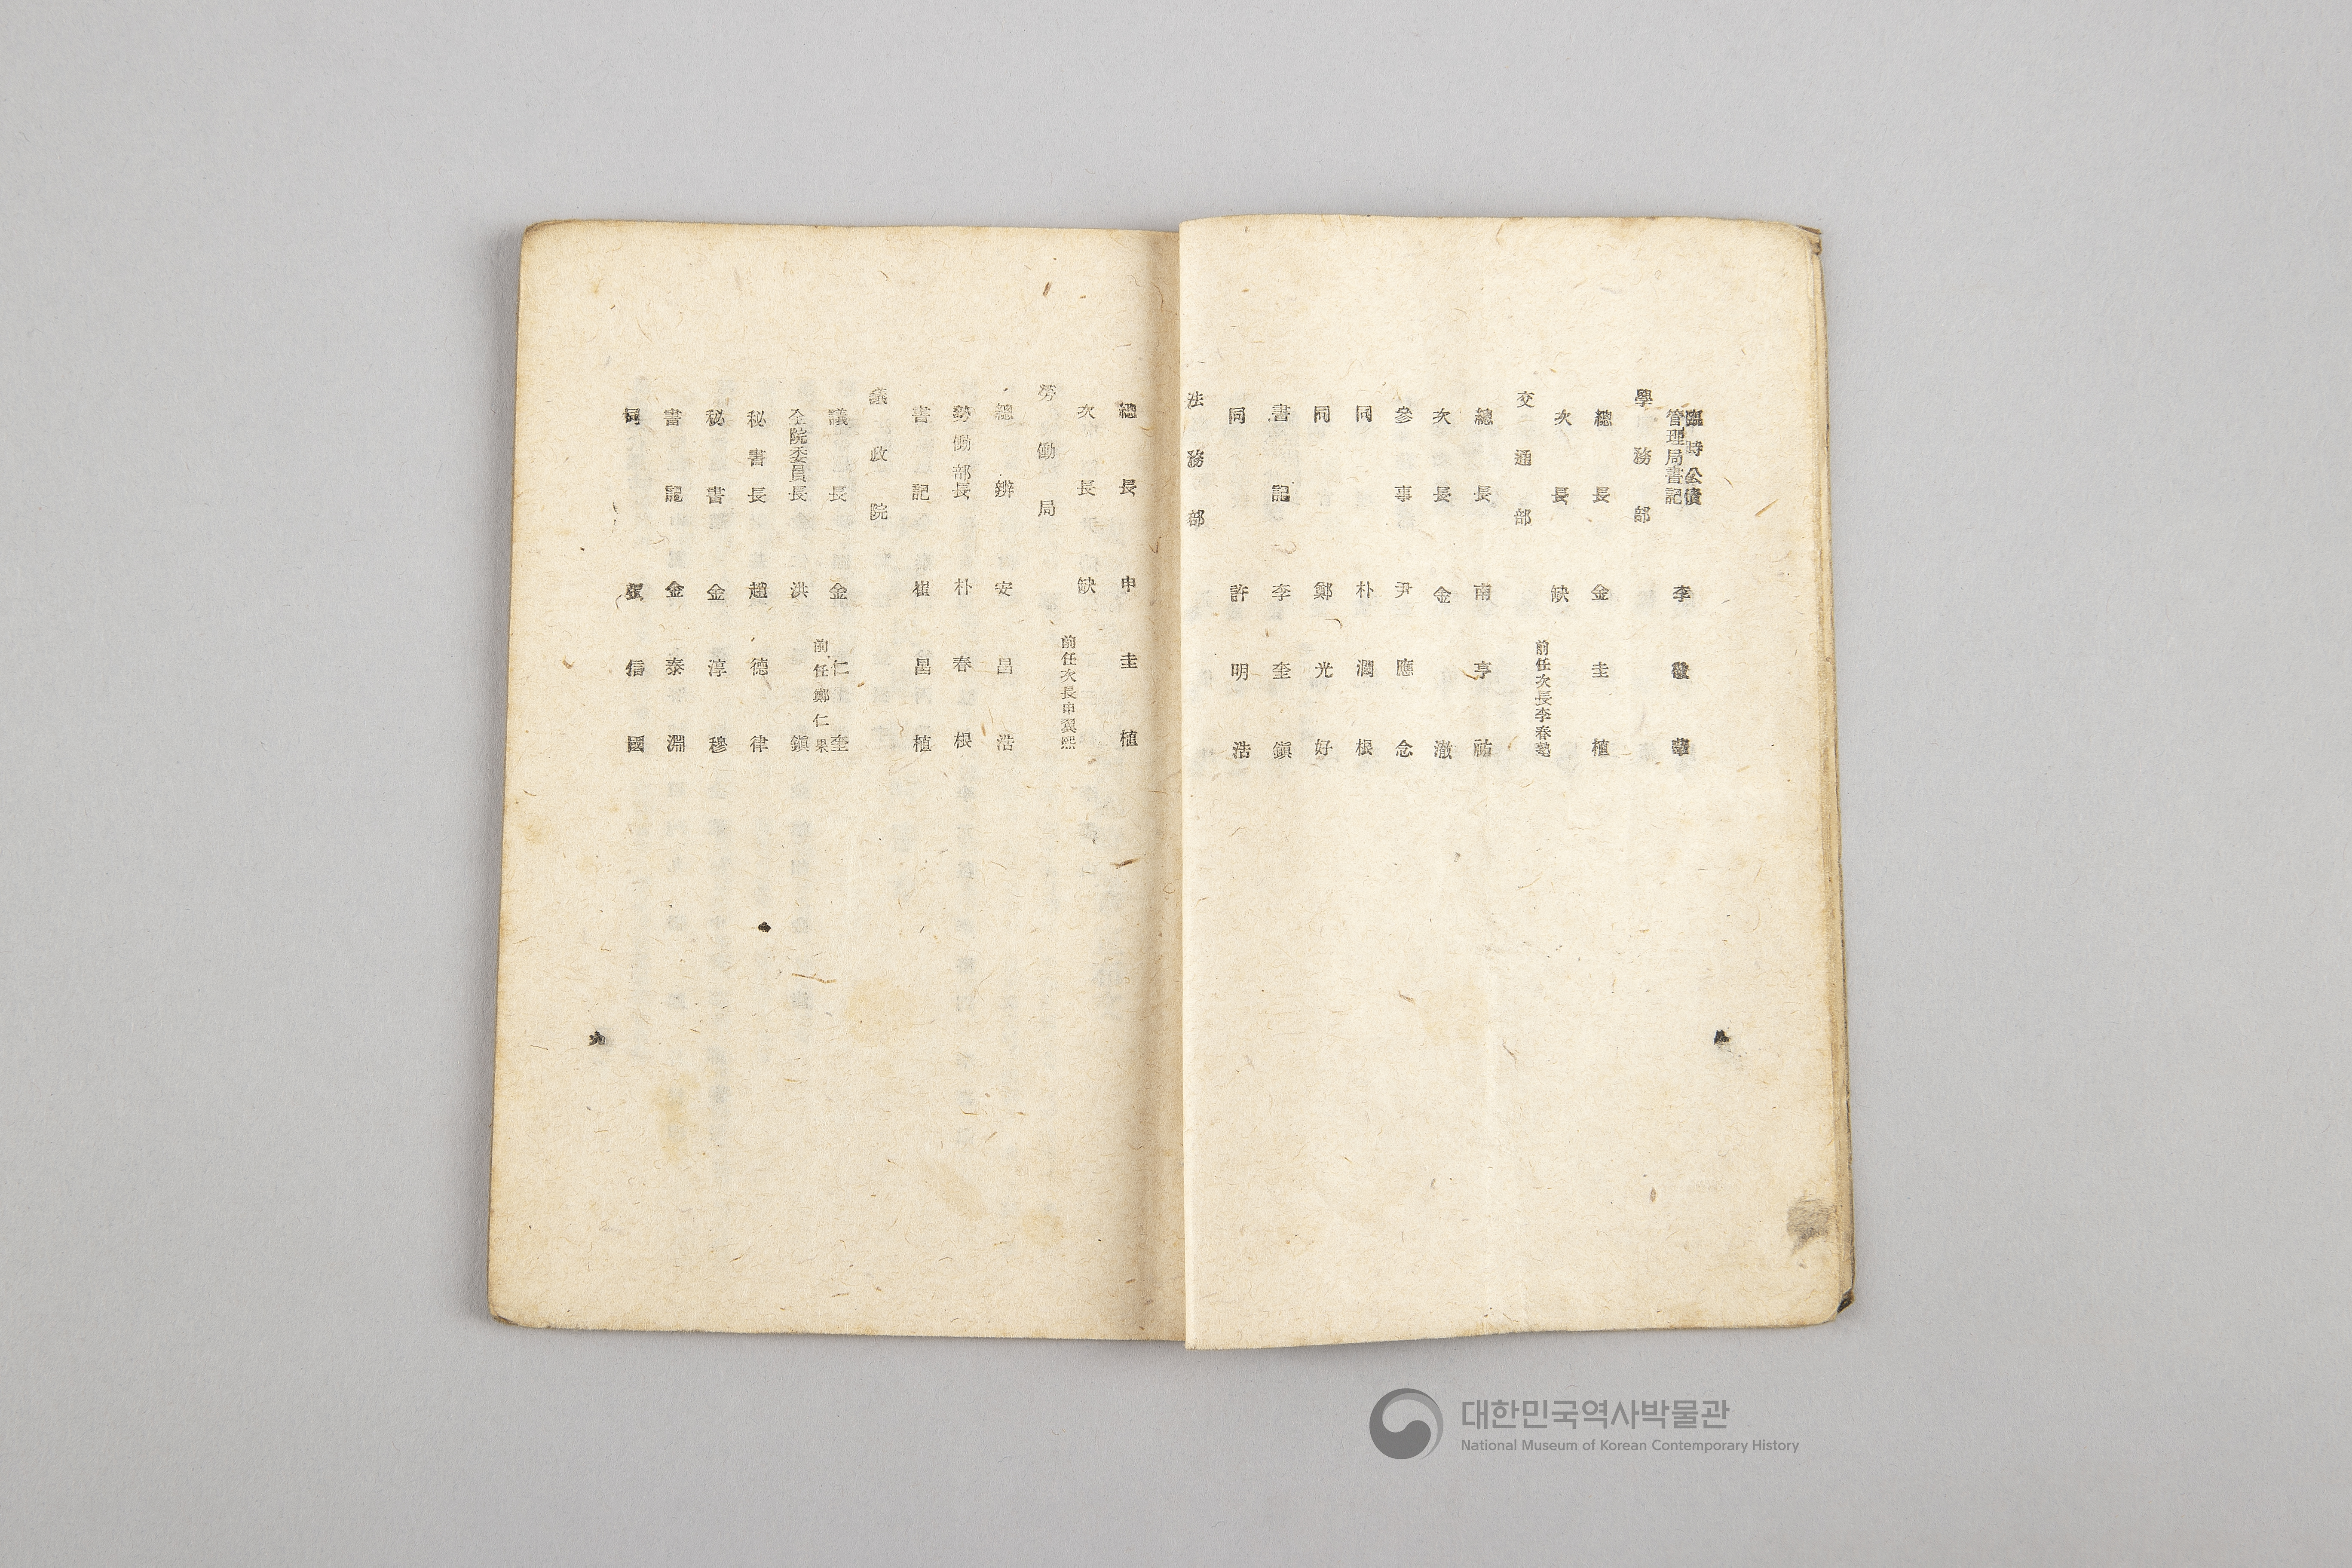 臨時公債
管理局書記 李
學務部
總長 金圭植
次長 缺
前任次長李春塾
交通部
總長 南亨祐
次長 金澈
參事 尹應念
同 朴潤根
同 鄭光好
書記 李奎鎭
同 許明浩
法務部
總長 申圭植
次長 缺
前任次長申翼熙
勞働局
總辨 安昌浩
勞働部長 朴春根
書記 崔昌植
議政院
議長 金仁奎
前任鄭仁果
全院委員長 洪鎭
秘書長 趙德律
秘書 金淳穆
書記 金泰淵
同 信國
八
九
대한민국역사박물관
National Museum of Korean Contemporary History